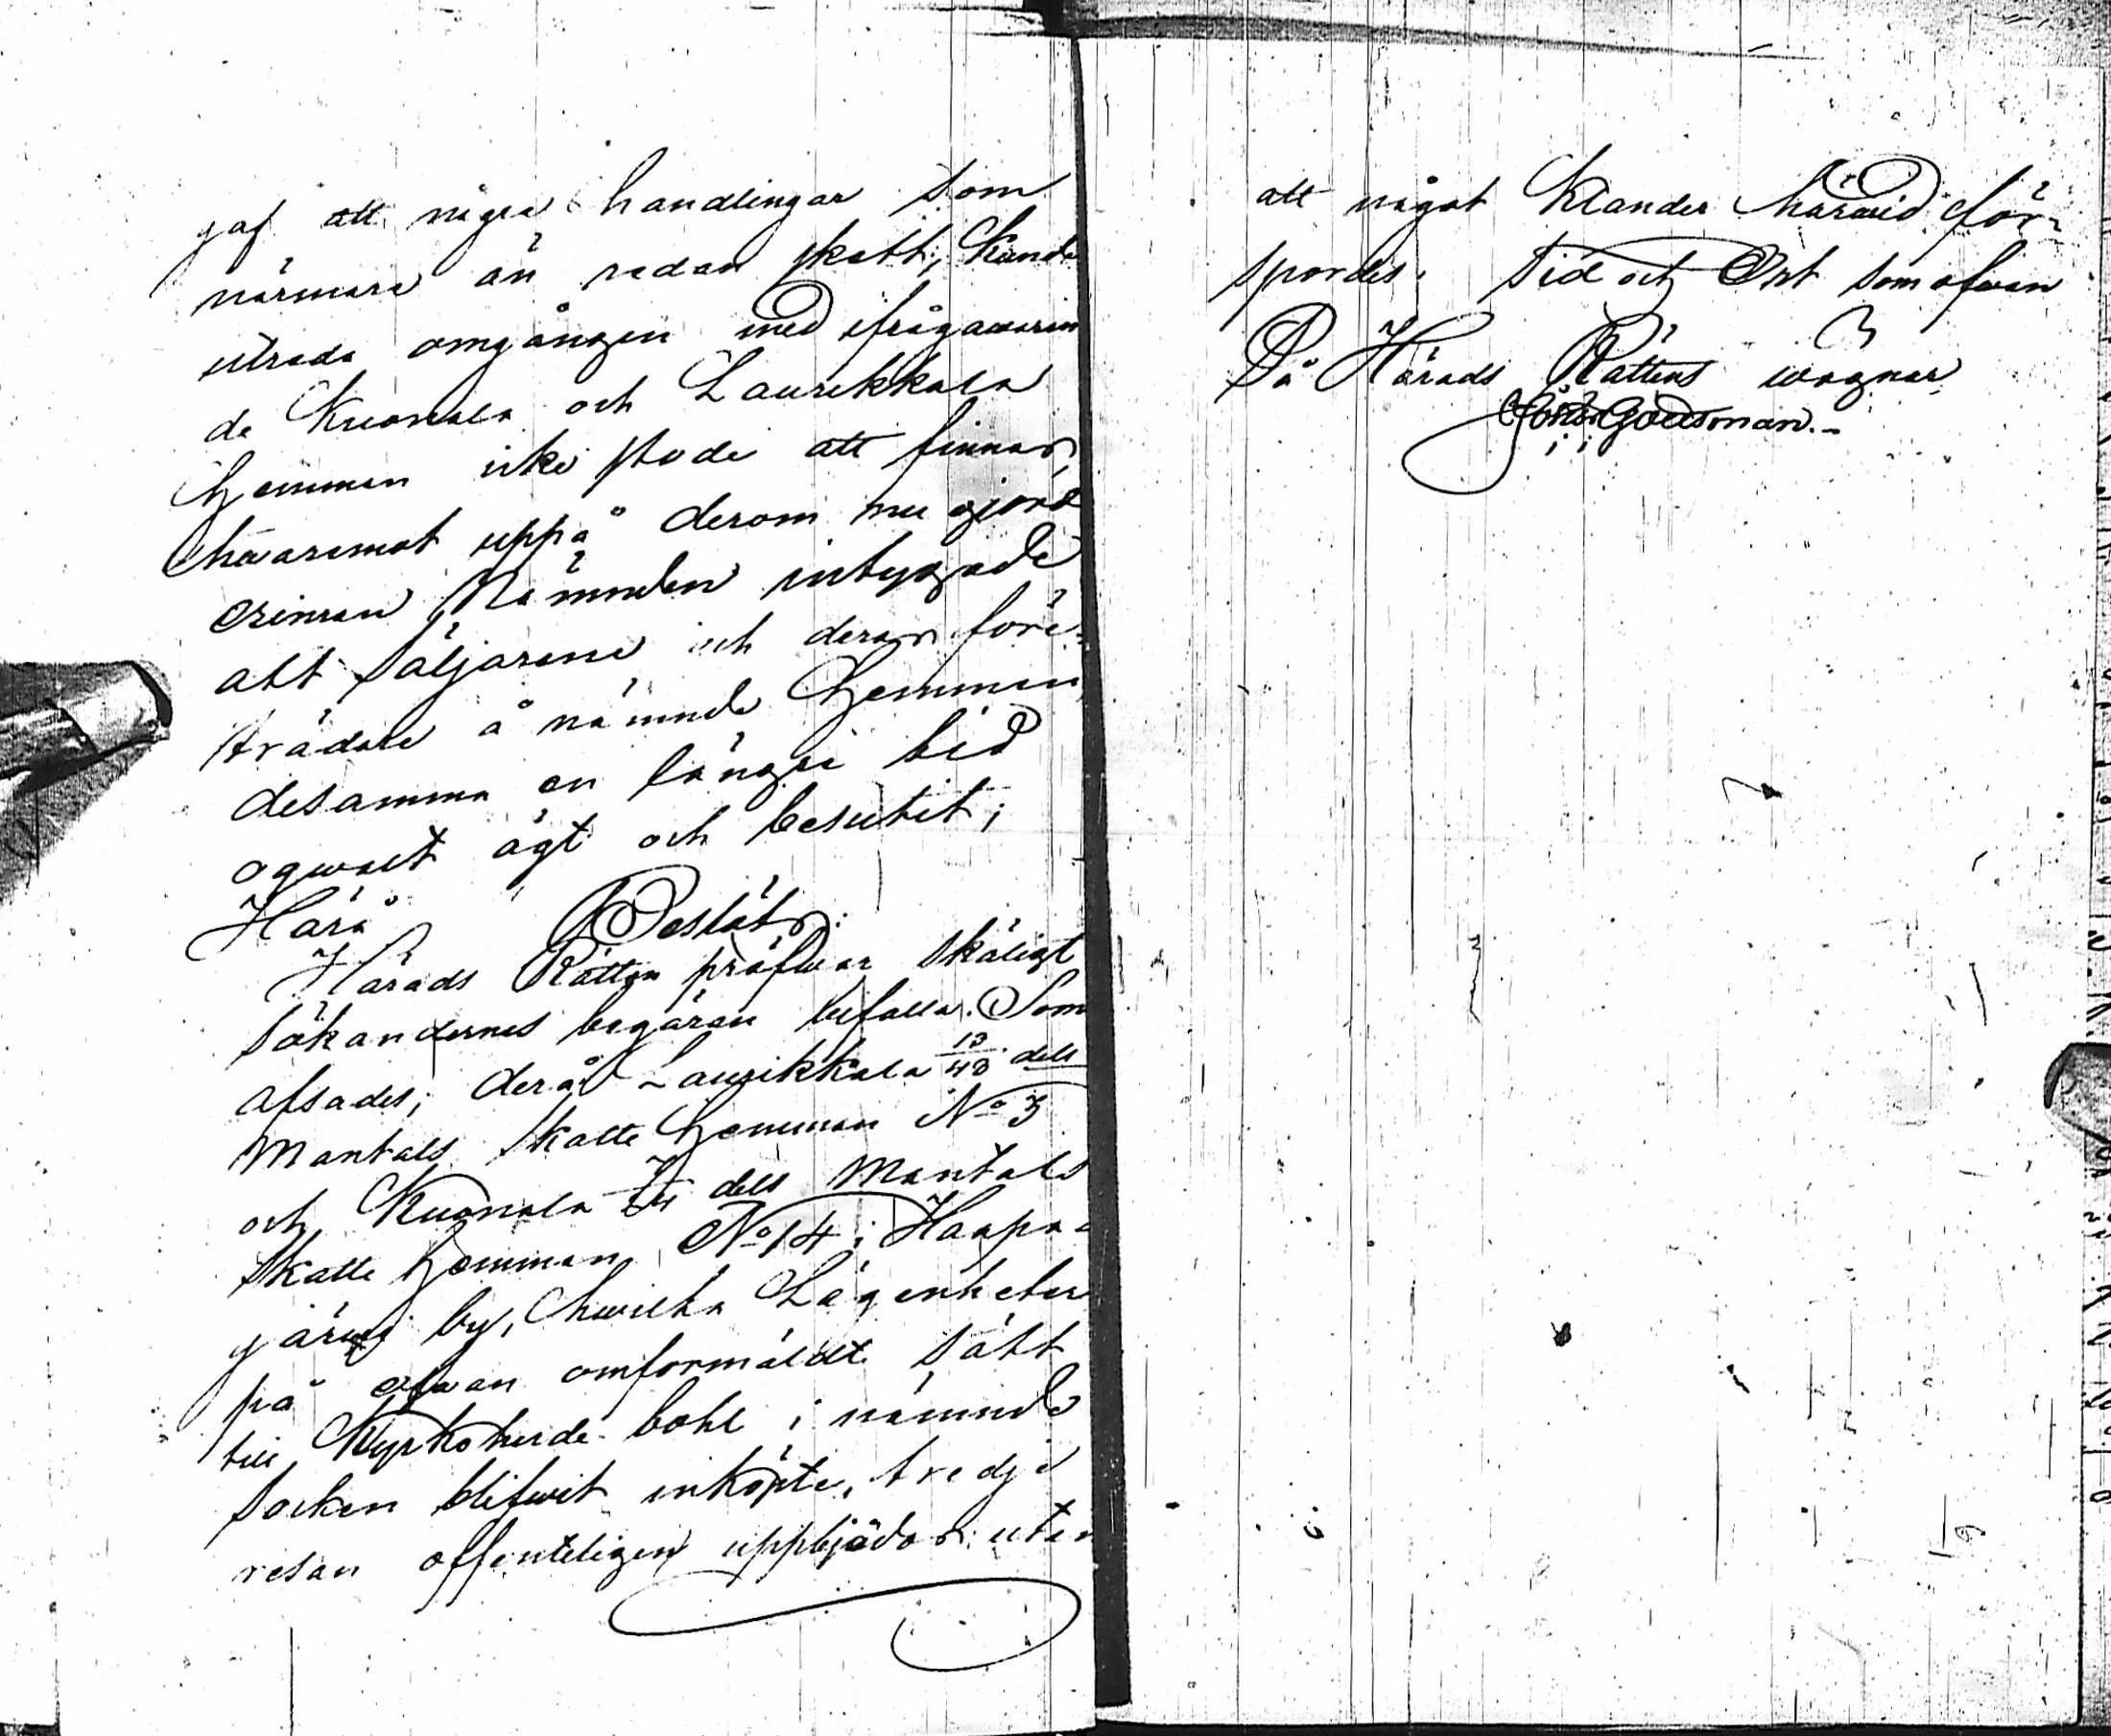 gaf att några handlingar som
närmare än redan skett, kunde
utreda omgången med ifrågawarän
de Kuonala och Laurikkala
hemman icke stode att finnas,
hwaremot uppå derom nu gjord
erinran Nämnden intygade
att säljarene och deras före-
trädare å nämnde hemman
desamma en längre tid
oqwalt ägt och besutit;
Härå Beslöts:
Härads Rätten pröfwar skäligt
sökandernes begäran bifalla. Som
afsades; derå Laurikkala 13/48 dels
Mantals Skatte hemman No 3
och Kuonala dels Mantals
Skatte hemman No 14 i Haapa-
järwi by, hwilka Lägenheter
på ofwan omförmäldte sätt
till Kyrkoherde bohl i nämnde
Socken blifwit inköpte, tredje
resan offenteligen uppbjödos utan
att något Klander härwid för-
spordes. Tid och Ort som ofwan
På Härads Rättens wägnar